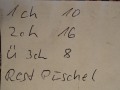 1 ch 10
2 ch 16
Ü 3ch 8
Rest Püschel